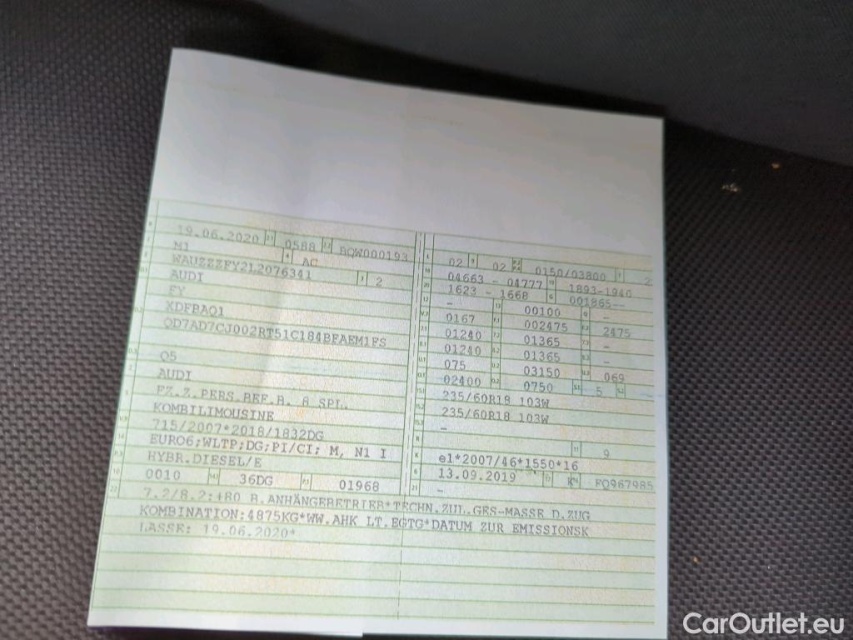 19.06.2020 0588 BQW000193
M1 AC
WAUZZZFY2L2076341 2
AUDI
FY
XDFBAQ1
QD7AD7CJ002RT51C184BFAEM1FS
Q5
AUDI
FZ.Z.PERS.BEF.B. 8 SPL.
KOMBILIMOUSINE
715/2007*2018/1832DG
EURO6;WLTP;DG;PI/CI; M, N1 I
HYBR.DIESEL/E
0010 36DG 01968
02 02 0150/03800 2
04663 - 04777 1893-1940
1623 - 1668 001865--
- 00100 -
0167 002475 2475
01240 01365 -
01240 01365 -
075 03150 069
02400 0750 5
235/60R18 103W
235/60R18 103W
-
9
e1*2007/46*1550*16
13.09.2019 K FO967985
-
7.2/8.2:+80 B.ANHÄNGEBETRIEB*TECHN.ZUL.GES-MASSE D.ZUG
KOMBINATION:4875KG*WW.AHK LT.EGTG*DATUM ZUR EMISSIONSK
LASSE: 19.06.2020*
CarOutlet.eu